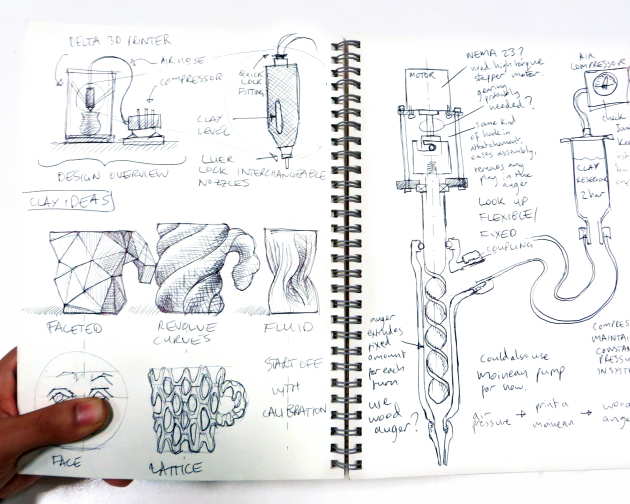 DELTA 3D PRINTER
AIR HOSE
COMPRESSOR
QUICK
LOCK
FITTING
CLAY
LEVEL
LUER
LOCK INTERCHANGEABLE
NOZZLES
DESIGN OVERVIEW
CLAY IDEAS
FACETED
REVOLVE
CURVES
FLUID
FACE
LATTICE
START OFF
WITH
CALIBRATION
MOTOR
NEMA 23?
need high torque
stepper motor
gearing
probably
needed?
some kind
of
attachment,
easy assembly,
removes any
play in the
auger
LOOK UP
FLEXIBLE/
FIXED
COUPLING
AIR
COMPRESSOR
CLAY
RESERVE
2 bar
auger
extrudes
fixed
amount
for each
turn
use
wood
auger?
Could also use
moineau pump
for now.
Air
pressure → print a
moineau →
COMPRES
MAINTAI
CONSTA
PRESSU
IN SYST